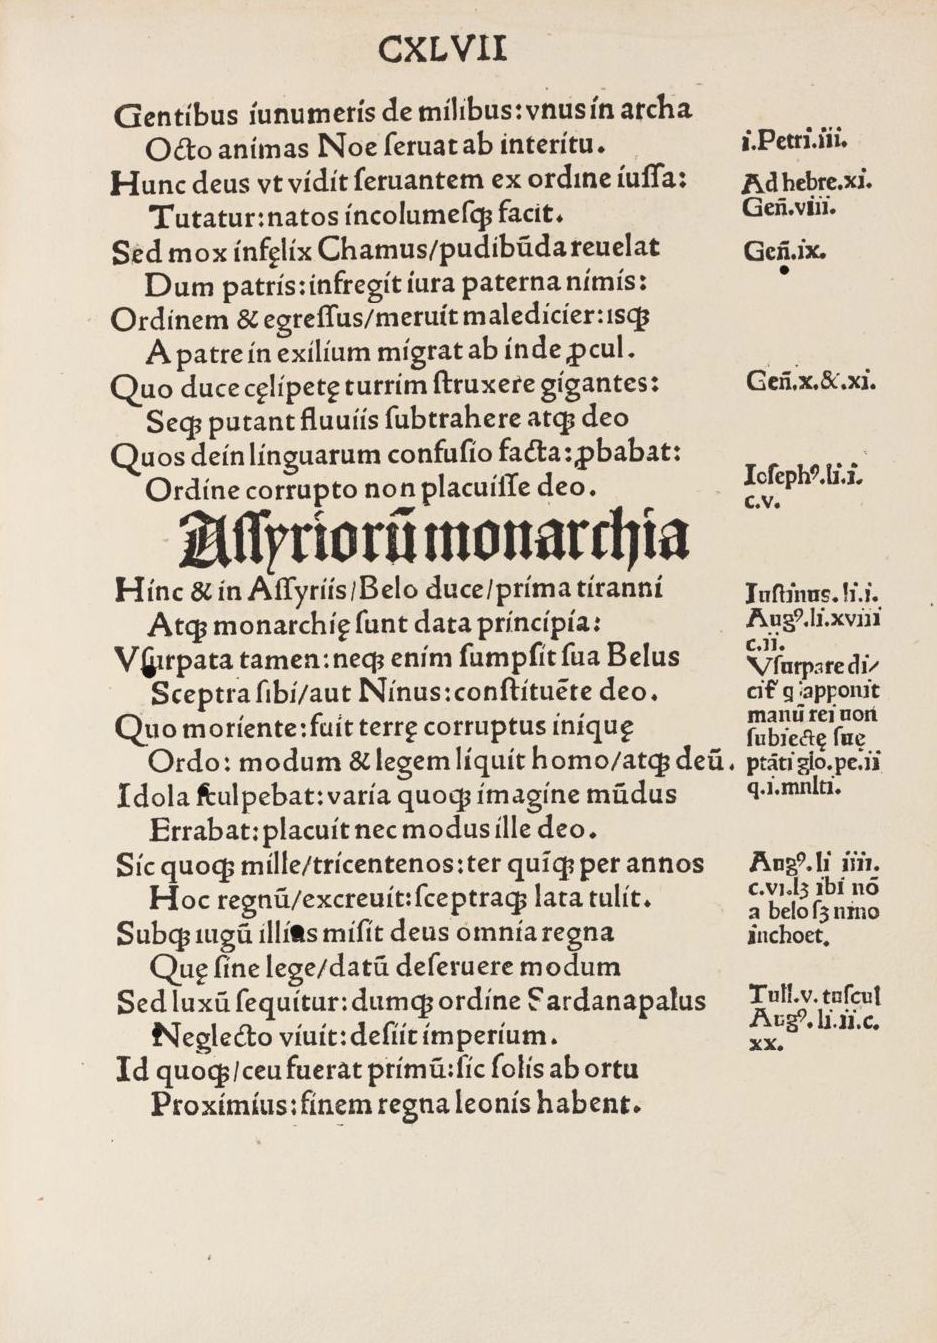 CXLVII
Gentibus iunumeris de milibus:vnus in archa
Octo animas Noe ſeruat ab interitu.
i.Petri.iii.
Hunc deus vt vidit ſeruantem ex ordine iuſſa:
Ad hebre.xi.
Tutatur:natos incolumeſqꝫ facit.
Geñ.viii.
Sed mox infęlix Chamus/pudibūda reuelat
Geñ.ix.
Dum patris:infregit iura paterna nimis:
Ordinem & egreſſus/meruit maledicier:isqꝫ
A patre in exilium migrat ab inde ꝓcul.
Quo duce cęlipetę turrim ſtruxere gigantes:
Geñ.x.&.xi.
Seqꝫ putant fluuiis ſubtrahere atqꝫ deo
Quos dein linguarum confuſio facta:ꝓbabat:
Ordine corrupto non placuiſſe deo.
Ioſephꝰ.li.i.
c.v.
Aſſyriorū monarchia
Hinc & in Aſſyriis/Belo duce/prima tiranni
Atqꝫ monarchię ſunt data principia:
Vſurpata tamen:neqꝫ enim ſumpſit ſua Belus
Sceptra ſibi/aut Ninus:conſtituēte deo.
Quo moriente:fuit terrę corruptus iniquę
Ordo: modum & legem liquit homo/atqꝫ deū.
Idola ſculpebat:varia quoqꝫ imagine mūdus
Errabat:placuit nec modus ille deo.
Iuſtinus.li.i.
Augꝰ.li.xviii
c.ii.
Vſurpare di/
cit̃ q apponit
manū rei non
ſubiectę ſuę
ptāti glo.pe.ii
q.i.multi.
Sic quoqꝫ mille/tricentenos:ter quīqꝫ per annos
Hoc regnū/excreuit:ſceptraqꝫ lata tulit.
Subqꝫ iugū illius miſit deus omnia regna
Quę ſine lege/datū deſeruere modum
Augꝰ.li iiii.
c.vi.lꝫ ibi nō
a belo ſꝫ nino
inchoet.
Sed luxū ſequitur:dumqꝫ ordine Sardanapalus
Neglecto viuit:deſiit imperium.
Id quoqꝫ/ceu fuerat primū:ſic ſolis ab ortu
Proximius:finem regna leonis habent.
Tull.v.tuſcul
Augꝰ.li.ii.c.
xx.